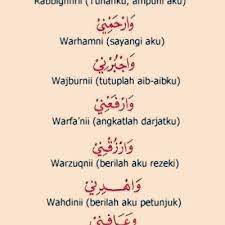 Rabbighfirlii (Tuhanku, ampuni aku)
وَارْحَمْنِيْ
Warhamni (sayangi aku)
وَاجْبُرْنِيْ
Wajburnii (tutuplah aib-aibku)
وَارْفَعْنِيْ
Warfa'nii (angkatlah darjatku)
وَارْزُقْنِيْ
Warzuqnii (berilah aku rezeki)
وَاهْدِنِيْ
Wahdinii (berilah aku petunjuk)
وَعَافِنِيْ